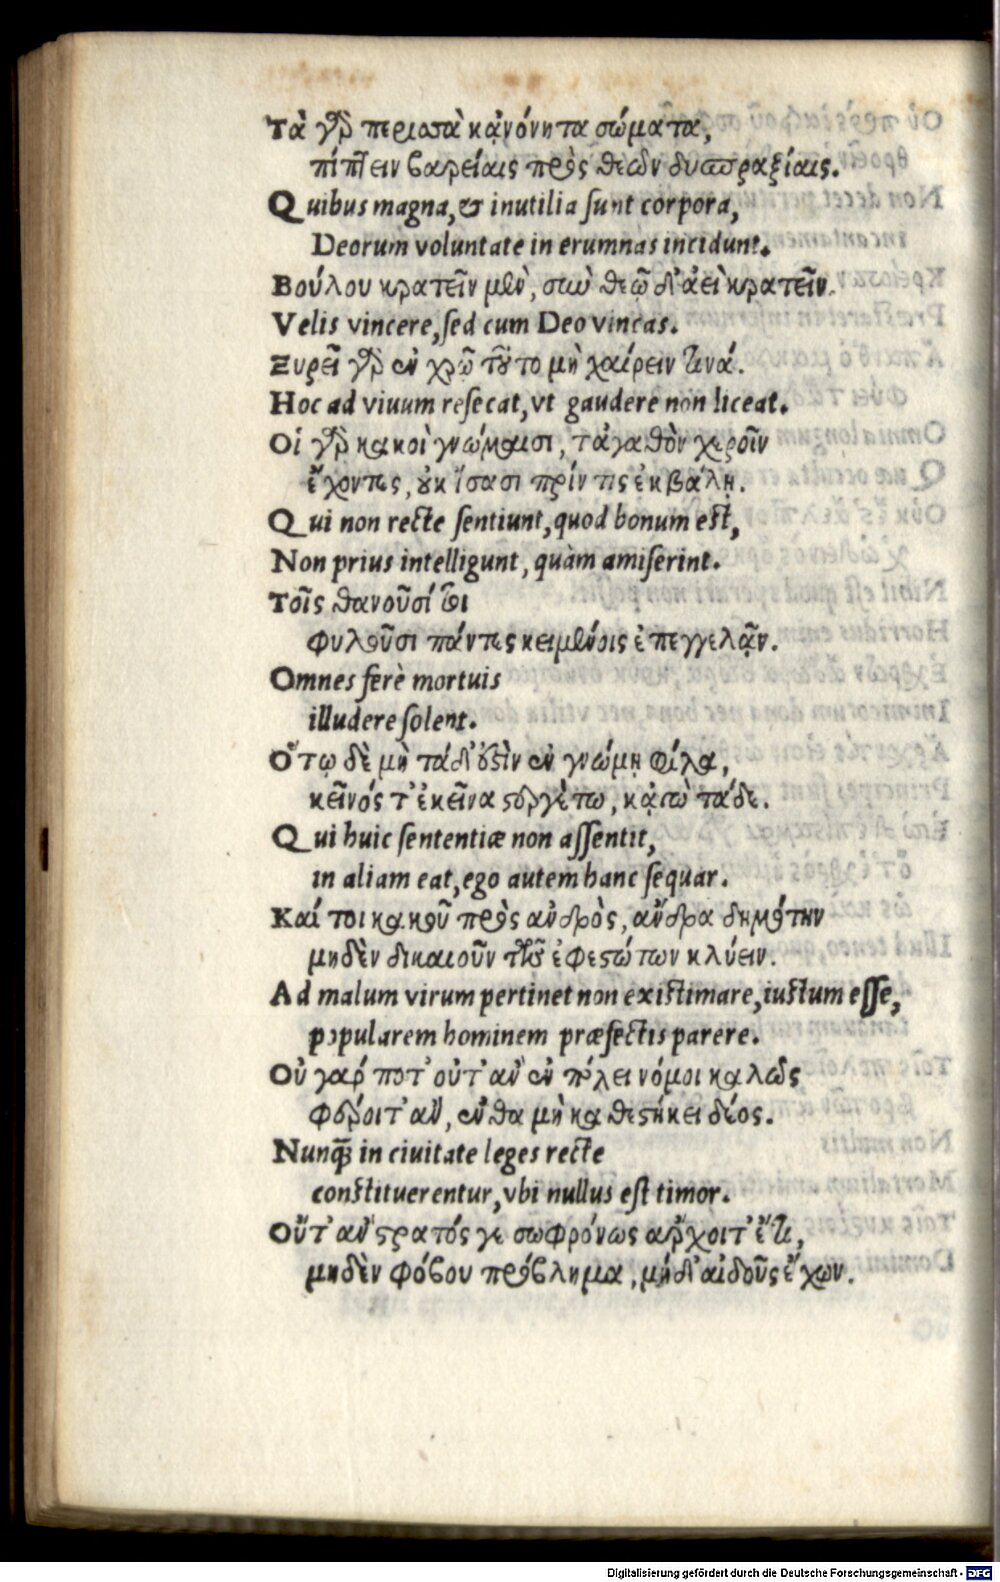 Τὰ γὰρ περισσὰ κᾀνόνητα σώματα,
πίπτειν βαρείαις πρὸς θεῶν δυσπραξίαις.
Quibus magna, & inutilia ſunt corpora,
Deorum voluntate in erumnas incidunt.
Βούλου κρατεῖν μὲν, σὺν θεῷ δ' ἀεὶ κρατεῖν.
Velis vincere, ſed cum Deo vincas.
Ξυρεῖ γὰρ ἐν χρῷ τοῦτο μὴ χαίρειν τινά.
Hoc ad viuum reſecat, vt gaudere non liceat.
Οἱ γὰρ κακοὶ γνώμαισι, τἀγαθὸν χεροῖν
ἔχοντες, οὐκ ἴσασι πρίν τις ἐκβάλῃ.
Qui non recte ſentiunt, quod bonum eſt,
Non prius intelligunt, quàm amiſerint.
Τοῖς θανοῦσί τοι
φιλοῦσι πάντες κειμένοις ἐπεγγελᾷν.
Omnes ferè mortuis
illudere ſolent.
Ὅτῳ δὲ μὴ τάδ' ἐστὶν ἐν γνώμῃ φίλα,
κεῖνός τ' ἐκεῖνα στεργέτω, κᾀγὼ τάδε.
Qui huic ſententiæ non aſſentit,
in aliam eat, ego autem hanc ſequar.
Καί τοι κακοῦ πρὸς ἀνδρὸς, ἄνδρα δημότην
μηδὲν δικαιοῦν τῶν ἐφεστώτων κλύειν.
Ad malum virum pertinet non exiſtimare, iuſtum eſſe,
popularem hominem præfectis parere.
Οὐ γάρ ποτ' οὔτ' ἂν ἐν πόλει νόμοι καλῶς
φέροιτ' ἂν, ἔνθα μὴ καθεστήκει δέος.
Nunq̃ in ciuitate leges recte
conſtituerentur, vbi nullus eſt timor.
Οὔτ' ἂν στρατός γε σωφρόνως ἄρχοιτ' ἔτι,
μηδὲν φόβου πρόβλημα, μήδ' αἰδοῦς ἔχων.
Digitalisierung gefördert durch die Deutsche Forschungsgemeinschaft - DFG